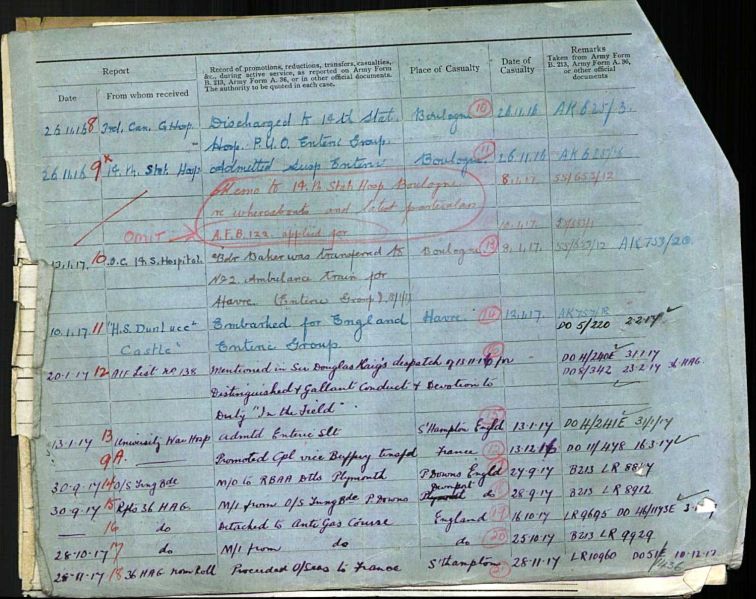 Report
Record of promotions, reductions, transfers, casualties, &c., during active service, as reported on Army Form B. 213, Army Form A. 36, or in other official documents. The authority to be quoted in each case.
Place of Casualty
Date of Casualty
Remarks
Taken from Army Form B. 213, Army Form A. 36, or other official documents
Date
From whom received
26.11.16 8 3rd. Can. G. Hosp. Discharged to 14th Stat. Boulogne 10 26.11.16 AK625/3.
Hosp. P.U.O. Enteric Group.
26.11.16 9 14. Th. Stat. Hosp Admitted Susp Enteric Boulogne. 11 26.11.16
Memo to 14. Th Stat. Hosp Boulogne 8.1.17. 55/653/12
re whereabouts and latest particulars
OMIT A.F.B.122. applied for 10.1.17.
10 O.C. 14. S. Hospital Bdr Baker was transferred to Boulogne 13 9.1.17. 55/653/12 AK753/20.
No 2. Ambulance Train for
Havre. (Enteric Group)
10.1.17. 11 "H.S. Dunluce Embarked for England Havre. 14
Castle" Enteric Group. DO 5/220 2.2.17
20.1.17 12 List No 138 Mentioned in Sir Douglas Haig's despatch of 13 11 16 for DO 11/240E 31.1.17
DO 8/342 23.2.17 36 HAG.
Distinguished & Gallant Conduct & Devotion to
Duty "In the Field"
13.1.17 13 University War Hosp admtd Enteric Slt S'Hampton Engld 13.1.17 DO 11/241E 31/1/17
9A. Promoted Cpl vice France 12 13.12.16 DO 11/478 16.3.17
30.9.17 14 O/S Trng Bde M/O to RBAA Dtls Plymouth P Downs Engld 27.9.17 B213 LR 8817
30.9.17 15 36 HAG M/I from O/S Trng Bde P Downs Devonport do 28.9.17 B213 LR 8912
16 do Detached to Anti Gas Course England 19 16.10.17 LR9695 DO 46/1173E
28.10.17 17 do M/I from do do 20 25.10.17 B213 LR 9929.
28.11.17 18 36 HAG Nom Roll Proceeded O/Seas to France S'thampton 21 28.11.17 LR10960 DO51E 10.12.17